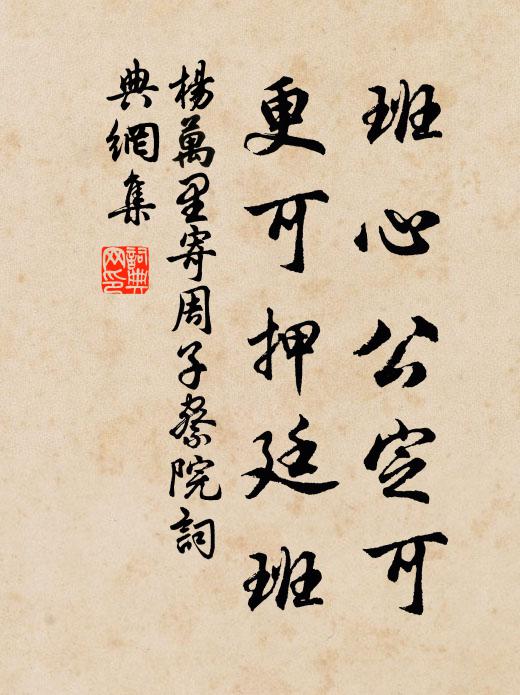 班心公定可
更可押廷班
楊萬里寄周子察院詞
典網集
詞典
网印